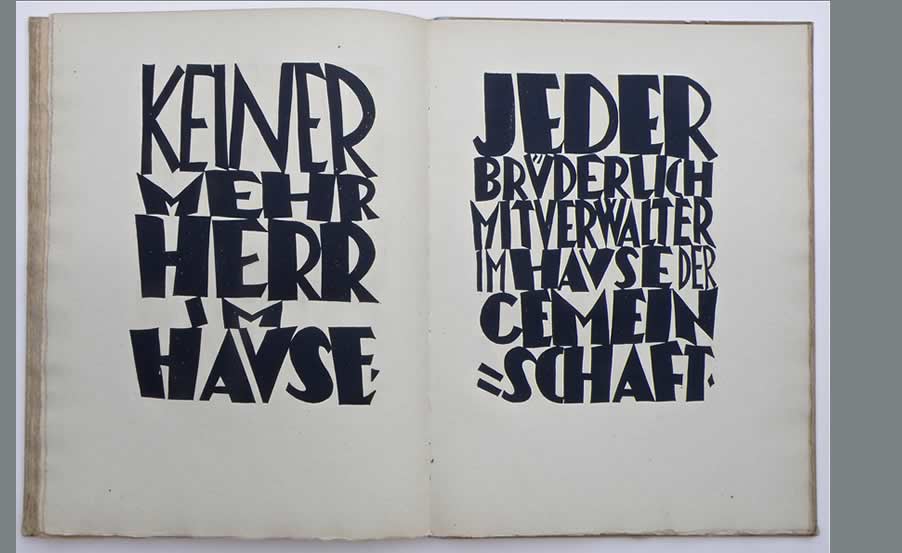 KEINER
MEHR
HERR
iM
HAVSE.
JEDER
BRÜDERLICH
MITVERWALTER
IM HAVSE DER
GEMEIN
=SCHAFT.